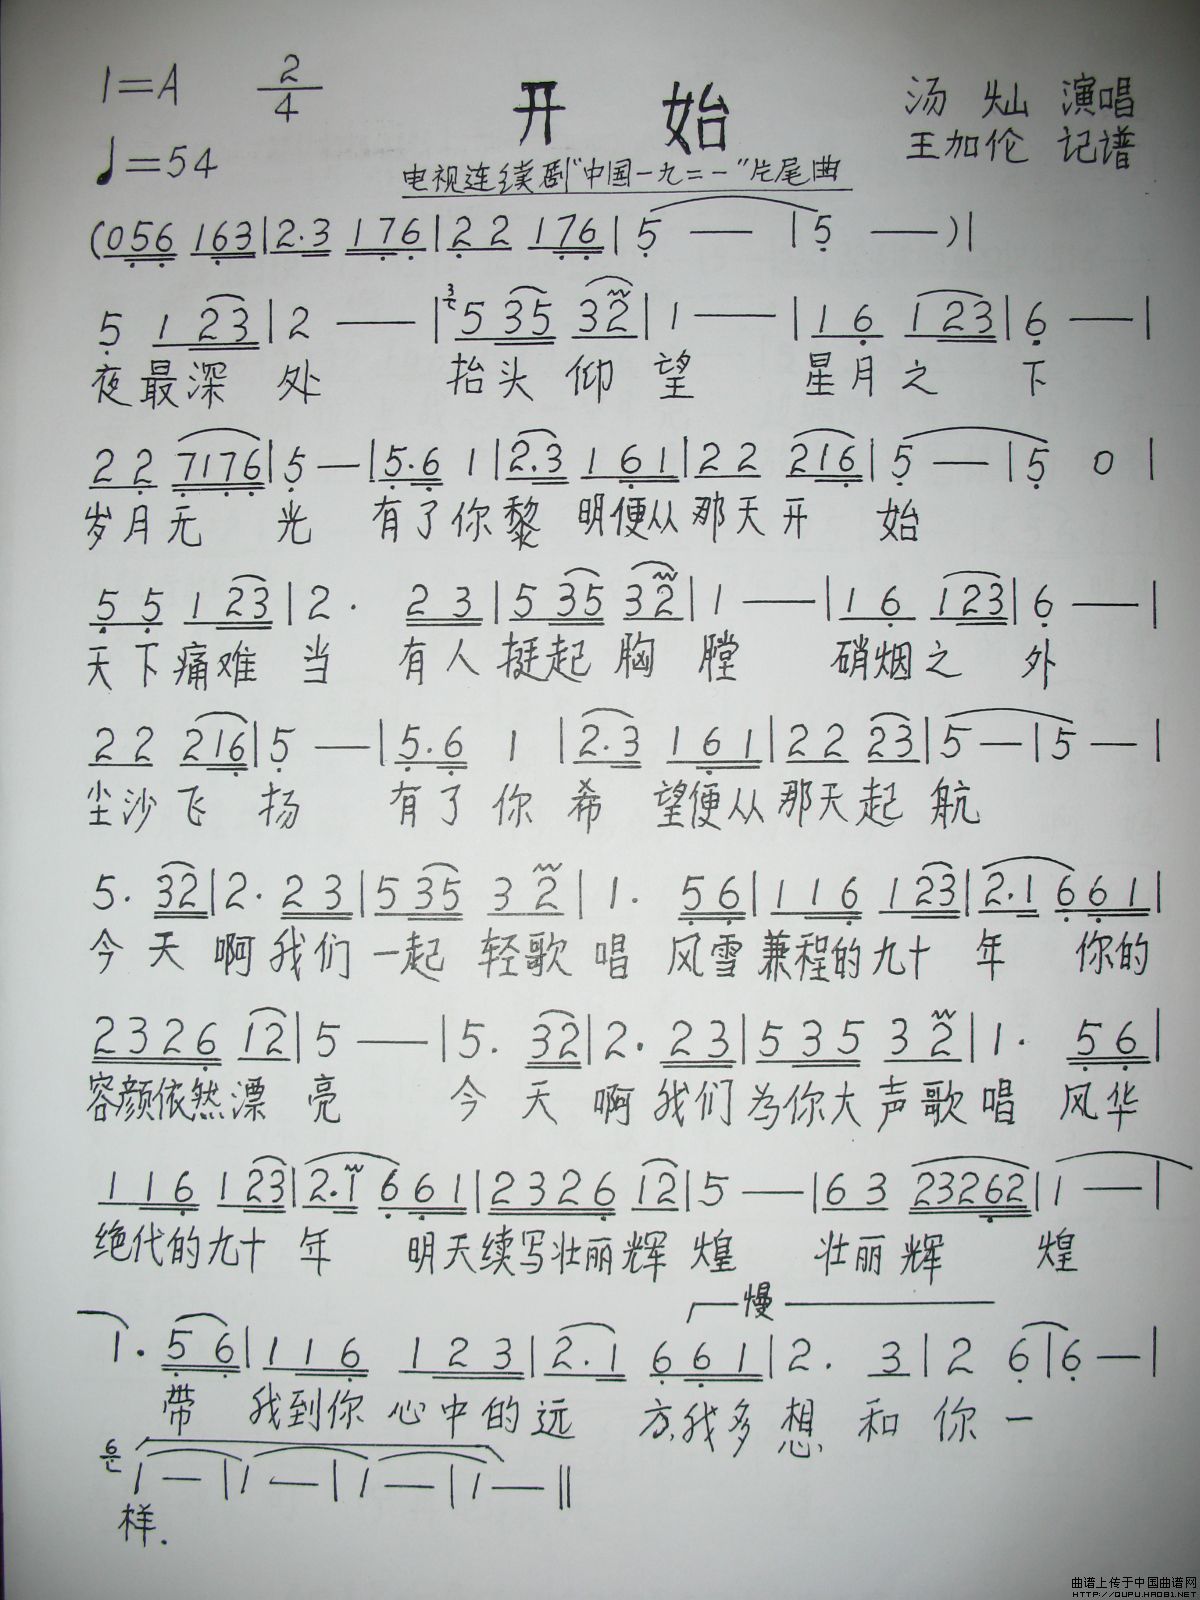 1=A 2/4 开 始 汤 灿 演唱
♩=54 王加伦 记谱
电视连续剧"中国一九二一"片尾曲
(056 163|2.3 176|22 176|5 — |5 —)|
5 1 23|2 — |3 5 35 32|1 — |16 123|6 — |
夜最深 处 抬头 仰 望 星月之 下
22 7176|5 — |5.6 1|2.3 161|22 216|5 — |5 0 |
岁月无 光 有了你黎 明便从那天开 始
55 123|2. 23|5 35 32|1 — |16 123|6 — |
天下痛难 当 有人挺起胸膛 硝烟之 外
22 216|5 — |5.6 1 |2.3 161|22 23|5 — |5 — |
尘沙飞 扬 有了你希 望便从那天起航
5. 32|2. 23|5 35 3 2|1. 56|116 123|2.1 661|
今 天 啊我们一起 轻歌唱 风雪兼程的九十 年 你的
2326 12|5 — |5. 32|2. 23|535 3 2|1. 56|
容颜依然漂 亮 今 天 啊我们为你大声歌唱 风华
116 123|2.1 661|2326 12|5 — |63 23262|1 — |
绝代的九十 年 明天续写壮丽辉煌 壮丽 辉 煌
慢
1. 56|116 123|2.1 661|2. 3|2 6|6 — |
带 我到你心中的远 方,我多想 和 你 一
6 1 — |1 — |1 — |1 — ||
样.
曲谱上传于中国曲谱网
HTTP://QUPU.HAO81.NET